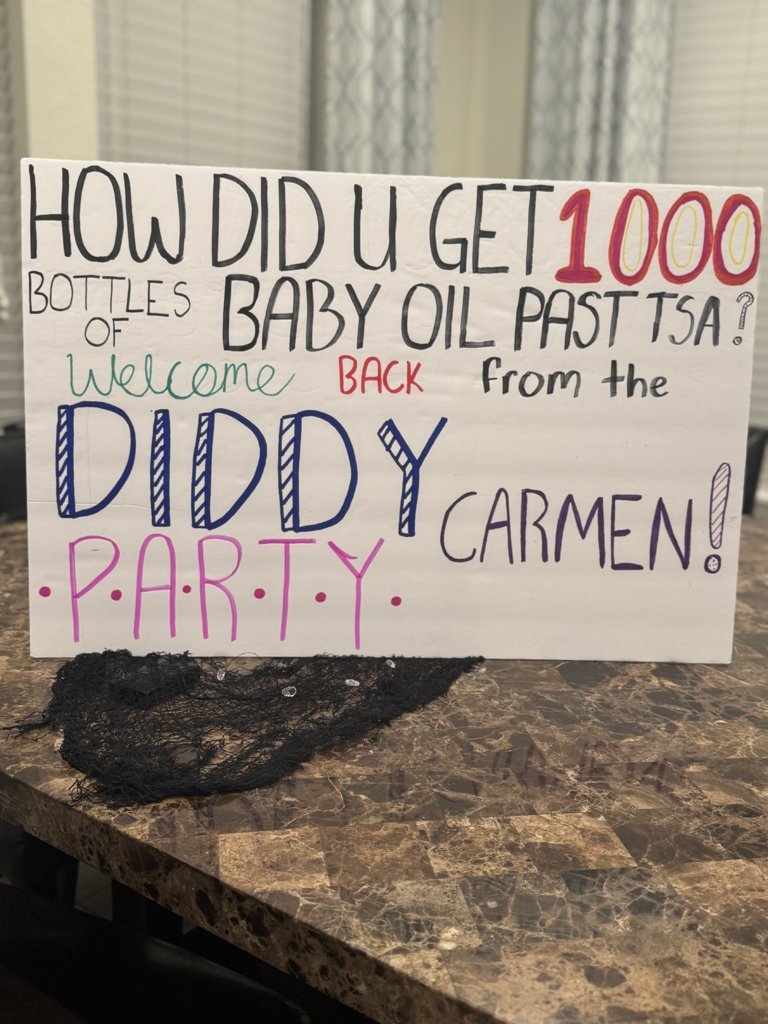 HOW DID U GET 1000
BOTTLES OF BABY OIL PAST TSA?
Welcome BACK from the
DIDDY
CARMEN!
·P·A·R·T·Y·